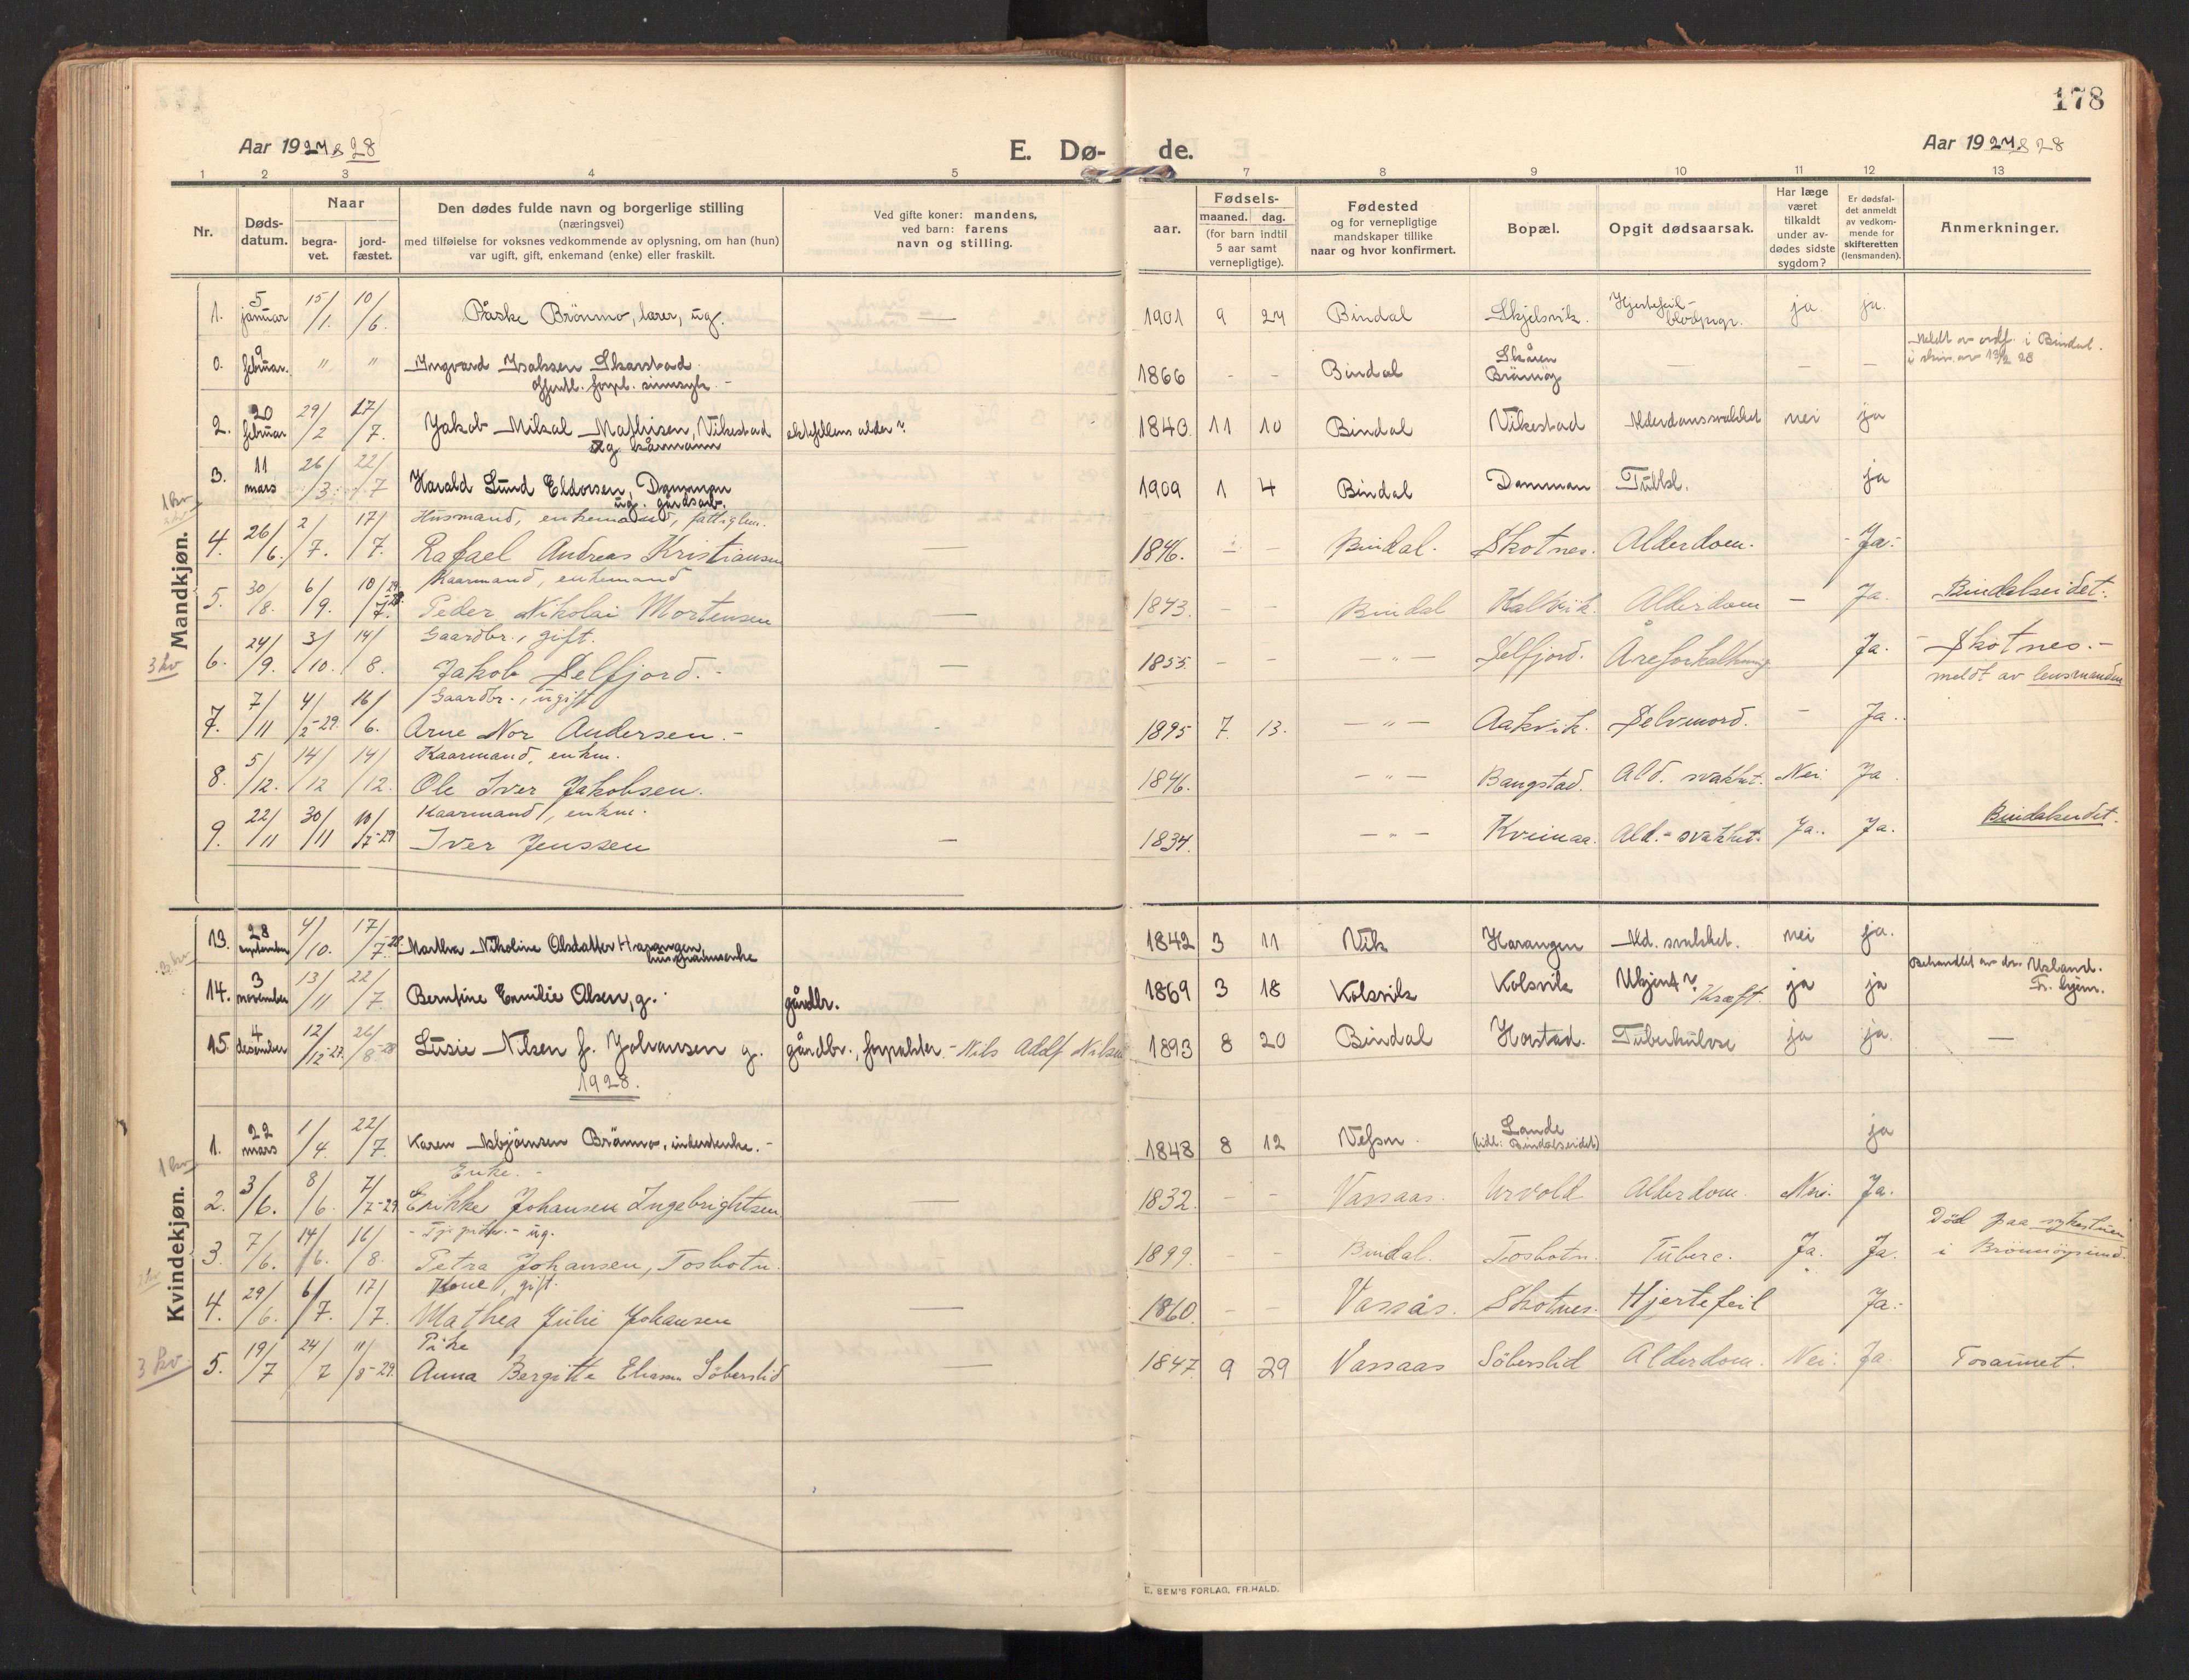 178
Aar 1927 & 28
E. Dø-
de.
Aar 1927 & 28
1 2 3 4 5 7 8 9 10 11 12 13
Nr.
Døds-
datum.
Naar
begra-
vet.
jord-
fæstet.
Den dødes fulde navn og borgerlige stilling
(næringsvei)
med tilføielse for voksnes vedkommende av oplysning, om han (hun)
var ugift, gift, enkemand (enke) eller fraskilt.
Ved gifte koner: mandens,
ved barn: farens
navn og stilling.
Fødsels-
aar.
maaned. dag.
(for barn indtil
5 aar samt
vernepligtige).
Fødested
og for vernepligtige
mandskaper tillike
naar og hvor konfirmert.
Bopæl.
Opgit dødsaarsak.
Har læge
været
tilkaldt
under av-
dødes sidste
sygdom?
Er dødsfal-
det anmeldt
av vedkom-
mende for
skifteretten
(lensmanden).
Anmerkninger.
Mandkjøn.
1. 5 januar 15/1. 10/6 Påske Brönmo, lærer, ug. — 1901 9 27 Bindal Skjelsvik. Hjertefeil- blodpgr. ja ja.
0. 9 februar. " " Ingvard Isaksen Skarstad 1866 - - Bindal Skåren Brönnöy — — — Meldt av ordf. i Bindal.
i skriv. av 13/2 28
offentl. forpl. sinnsyk. -
2. 20 februar 29/2 17/7. Jakob Mikal Mathisen, Vikestad ektefellens alder? 1840 11 10 Bindal Vikestad Alderdomsvakhet nei ja
ug kårmann
3. 11 mars 26/3. 22/7 Harald Lund Eldorsen, Damman 1909 1 4 Bindal Damman Tubkl. ja
ug. gårdsarb.
Husmand, enkemand, fattiglem.
4. 26/6. 2/7. 17/7. Rafael Andreas Kristiansen — 1846. - - Bindal. Skotnes. Alderdom. - Ja.-
Kaarmand, enkemand
5. 30/8. 6/9. 10/7. Peder Nikolai Mortensen — 1843. - - Bindal Kalvik. Alderdom - Ja. Bindalseidet.
Gaardbr., gift.
6. 24/9. 3/10. 14/8. Jakob Selfjord. - — 1855. - - - " - Selfjord. Åreforkalkning Ja. - Skotnes. -
meldt av lensmanden
Gaardbr., ugift
7. 7/11 4/2-29. 16/6. Arne Nor Andersen. - - 1895 7. 13. - " - Aakvik. Selvmord. - Ja.
Kaarmand, enkm.
8. 5/12. 14/12 14/12. Ole Iver Jakobsen. 1846. - " - Bangstad. Ald. svakhet. Nei. Ja.
Kaarmand, enkm.
9. 22/11 30/11 10/7-29 Iver Jenssen — 1834. - " - Kveinaa. Ald.- svakhet. Ja. Ja. Bindalseidet.
Kvindekjøn.
13. 28 september 4/10. 17/7-28. Martha Nikoline Olsdatter Harangen, 1842 3 11 Vik Harangen Ald. svakhet. nei ja.
husmannsenke
14. 3 november 13/11 22/7 Berntine Emilie Olsen, g. gårdbr. 1869 3 18 Kolsvik Kolsvik Ukjent? Kræft. ja ja Behandlet av dr. Usland.
15. 4 desember 12/12-27. 26/8-28 Lusie Nilsen f. Johansen g. gårdbr., forpakter - Nils Adolf Nilsen 1893 8 20 Bindal Horstad. Tuberkulose ja ja. —
1928.
1. 22 mars 1/4. 22/7. Karen Asbjörnsen Brönmo, inderstenke. - 1848 8 12 Vefsn. Lande ja
(tidl: Bindalseidet)
Enke. -
2. 3/6. 8/6. 7/7-29 Erikke Johansen Ingebrightsen — 1832. - - Vassaas. Urvold Alderdom. Nei. Ja.
ug.
3. 7/6. 14/6. 16/8. Petra Johansen, Tosbotn. 1899. - - Bindal. Tosbotn. Tuberc. Ja. Ja. Död paa sykestuen
i Brönnöysund.
Kone, gift.
4. 29/6. 6/7. 17/7. Mathea Julie Johansen — 1860. - - Vassås. Skotnes. Hjertefeil Ja.
Pike
5. 19/7 24/7 11/8-29. Anna Bergitte Eliasen Söberslid — 1847. 9 29 Vassaas Söberslid Alderdom. Nei. Ja. Tosaunet.
3 kv
1 kv
3 kv
E. SEM'S FORLAG, FR.HALD.